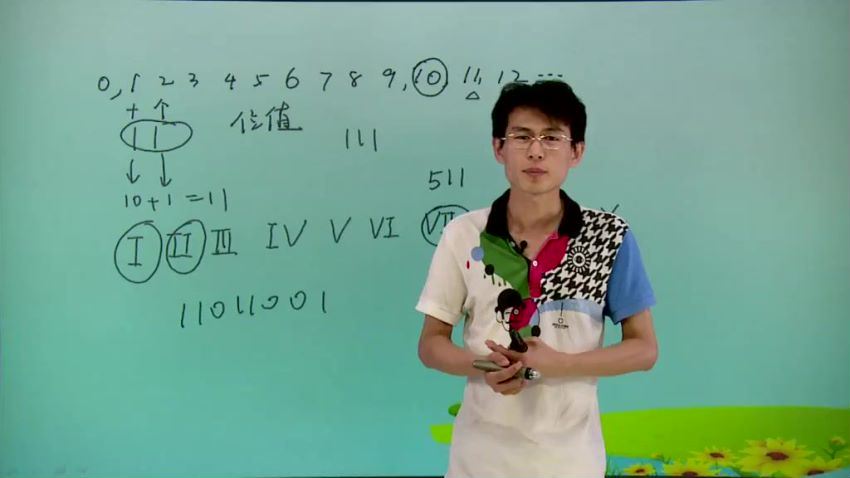 0, 1 2 3 4 5 6 7 8 9, 10 11, 12 ...
+
11 位值 111
10+1=11 511
I II III IV V VI VII
11011001